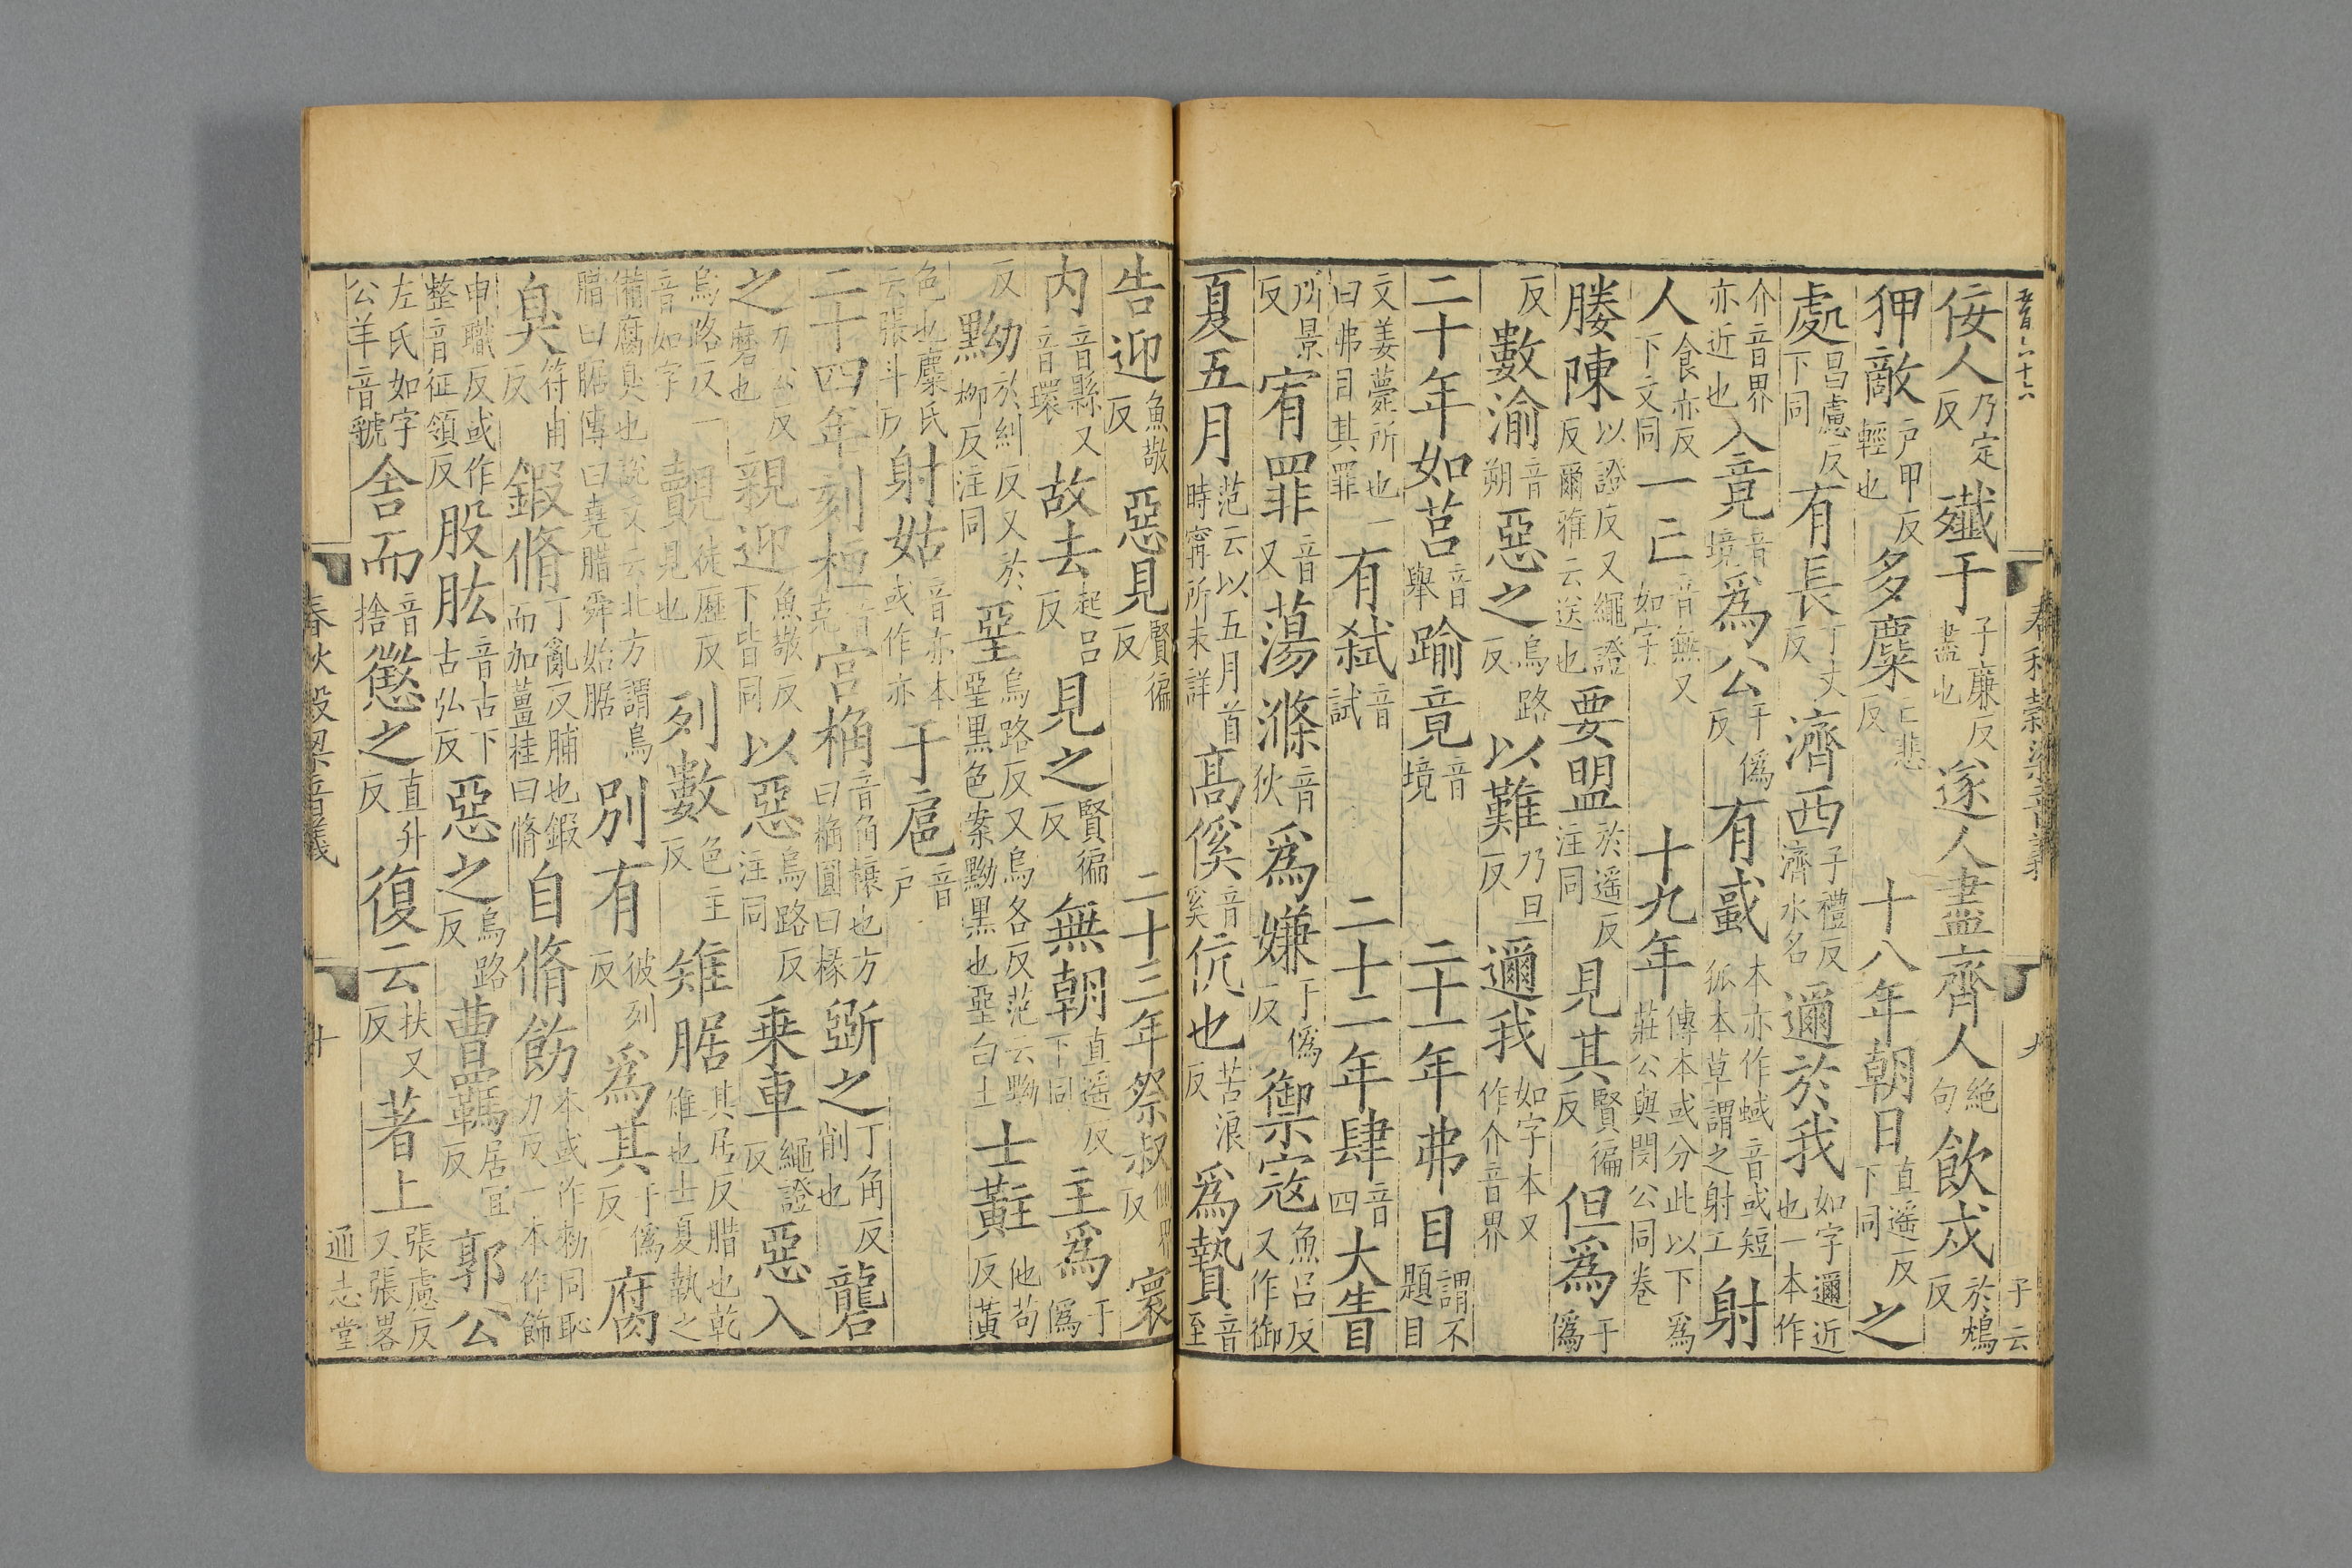 佞人乃定反殲于子廉反盡也遂人盡齊人絶句飲戍於鴆反
狎敵戶甲反輕也多麋亡悲反十八年朝日直遥反下同之
處昌慮反下同有長丁丈反濟西子禮反濟水名邇於我如字邇近也一本作
介音界亦近也入竟音境爲公于僞反有蜮本亦作蜮音或短狐本草謂之射工射
人食亦反下文同一亡音無又如字十九年傳本或分此以下爲莊公與閔公同卷
媵陳以證反又繩證反爾雅云送也要盟於遥反注同見其賢徧反但爲于僞
反數渝音朔惡之烏路反以難乃旦反邇我如字本又作介音界
二十年如莒音舉踰竟音境二十一年弗目謂不題目
文姜薨所也一曰弗目其罪有弑音試二十二年肆音四大眚
所景反宥罪音又蕩滌音狄爲嫌于僞反御寇魚呂反又作御
夏五月范云以五月首時甯所未詳高傒音奚伉也苦浪反爲贄音至
春秋穀梁音義
九
子云
告迎魚敬反惡見賢徧反二十三年祭叔側界反寰
内音縣又音環故去起呂反見之賢徧反無朝直遥反下同主爲于僞
反黝於糾反又於柳反注同堊烏路反又烏各反范云黝堊黑色案黝黑也堊白土士黈他苟反黃
色也麋氏云張斗反射姑音亦本或作亦于扈音戶
二十四年刻桓音克宫桷音角榱也方曰桷圓曰椽斲之丁角反削也礱
之力公反磨也親迎魚敬反下皆同以惡烏路反注同乗車繩證反惡入
烏路反一音如字覿徒歷反見也列數色主反雉腒其居反腊也乾雉也士夏執之
備腐臭也説文云北方謂鳥腊曰腒傳曰堯腊舜始腒別有彼列反爲其于僞反腐
臭符甫反鍜脩丁亂反脯也鍜而加薑桂曰脩自脩飭本或作勑同恥力反一本作飾
申職反或作整音征領反股肱音古下古弘反惡之烏路反曹羈居宜反郭公
左氏如字公羊音虢舍而音捨懲之直升反復云扶又反著上張慮反又張畧
春秋穀梁音義
十
通志堂